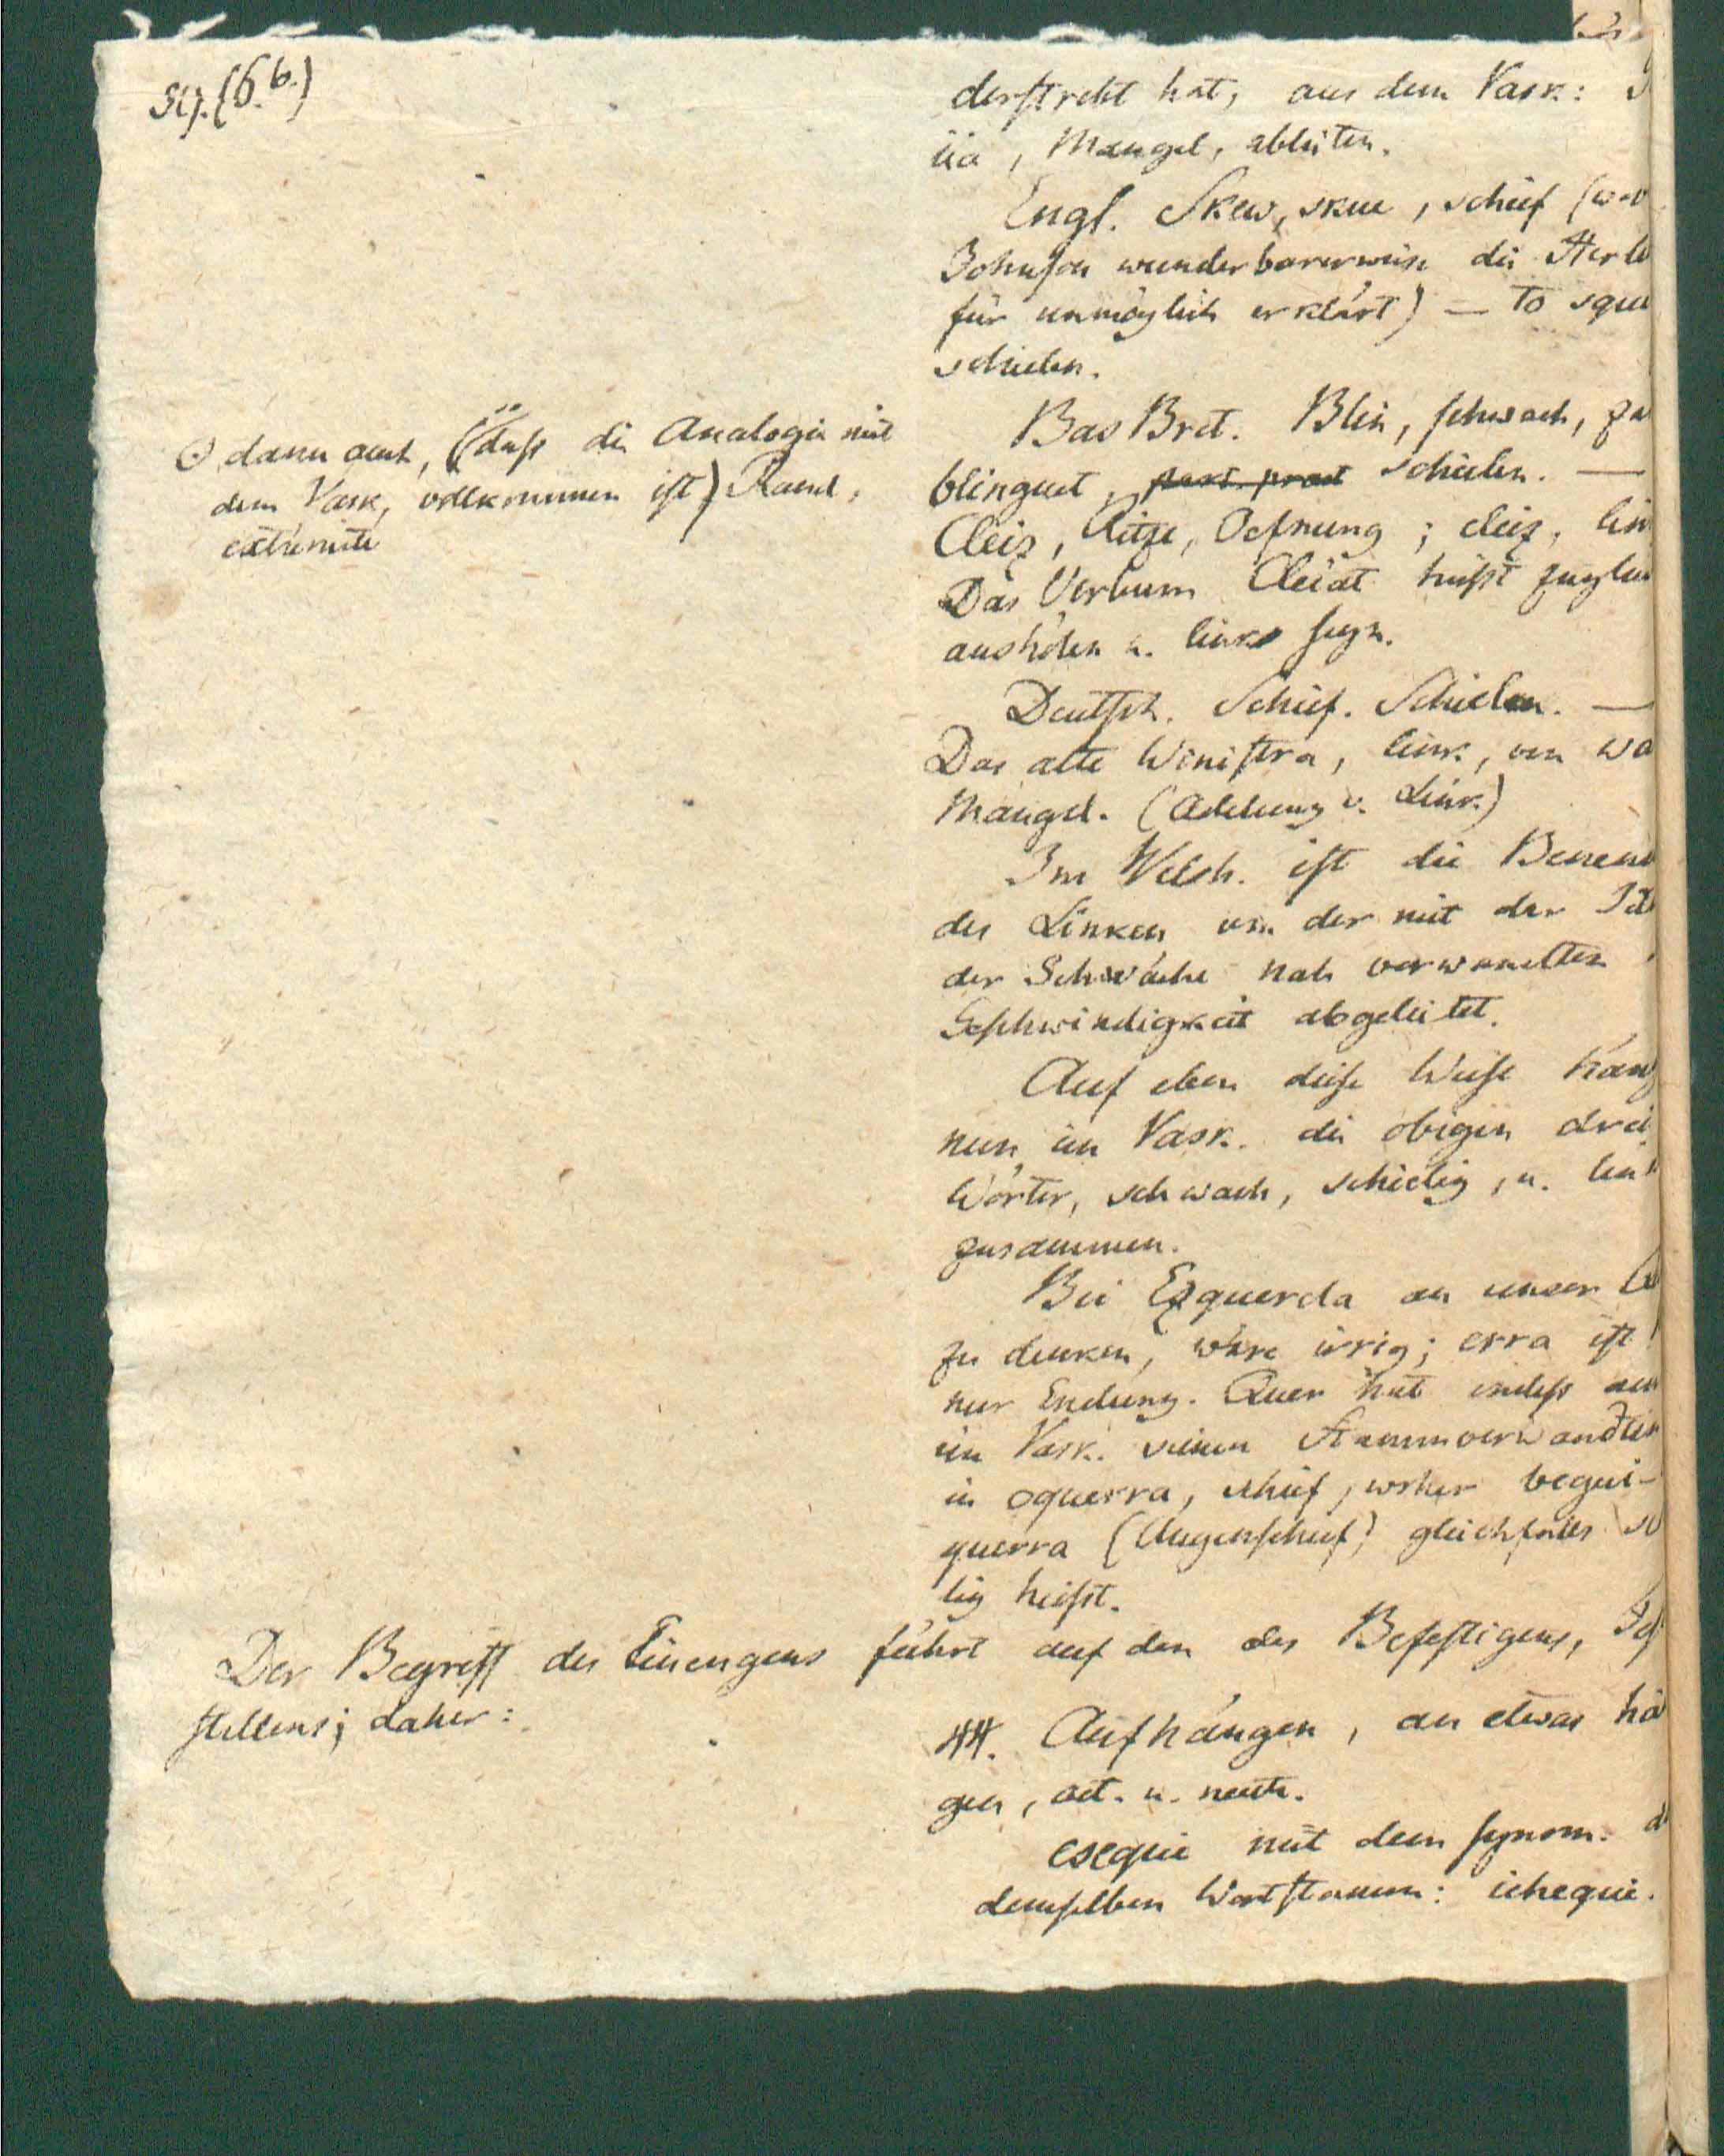 59. (6.b.)
derstrebt hat, aus dem Vask:
üa, Mangel, ableiten.
Engl. Skew, skue, schief (wo
Johnson wunderbarerweise die Herle
für unmöglich erklärt) — to squi
schielen.
Bas Bret. Blin, schwach, za
blinguet, part. praet schielen. —
Cleiz, Ritze, Oefnung; cleiz, lin
Das Verbum Cleiat heifst zuglei
aushölen u. links seyn.
⊙ dann auch, (daß die Analogie mit
dem Vask, vollkommen ist) Rand,
extrémité
Deutsch. Schief. Schielen. —
Das alte Winistra, link, von wa
Mangel. (Adelung v. Link)
Im Welsh. ist die Benenn
des Linken von der mit der Ide
der Schwäche nah verwandten
Geschwindigkeit abgeleitet.
Auf eben diese Weise häng
nun im Vask. die obigen drei
Wörter, schwach, schielig, u. link
zusammen.
Bei Ezquerda an unser
zu denken, wäre irrig; erra ist
nur Endung. Quer hat indess auch
im Vask. seinen Stammverwandten
in oquerra, schief, woher begui-
querra (Augenschief) gleichfalls sc
lig heifst.
Der Begriff des Einengens führt auf den des Befestigens,
stellens; daher:
44. Aufhängen, an etwas hä
gen, act. u. neutr.
esequi mit dem synom.
demselben Wortstamm: ichequi.